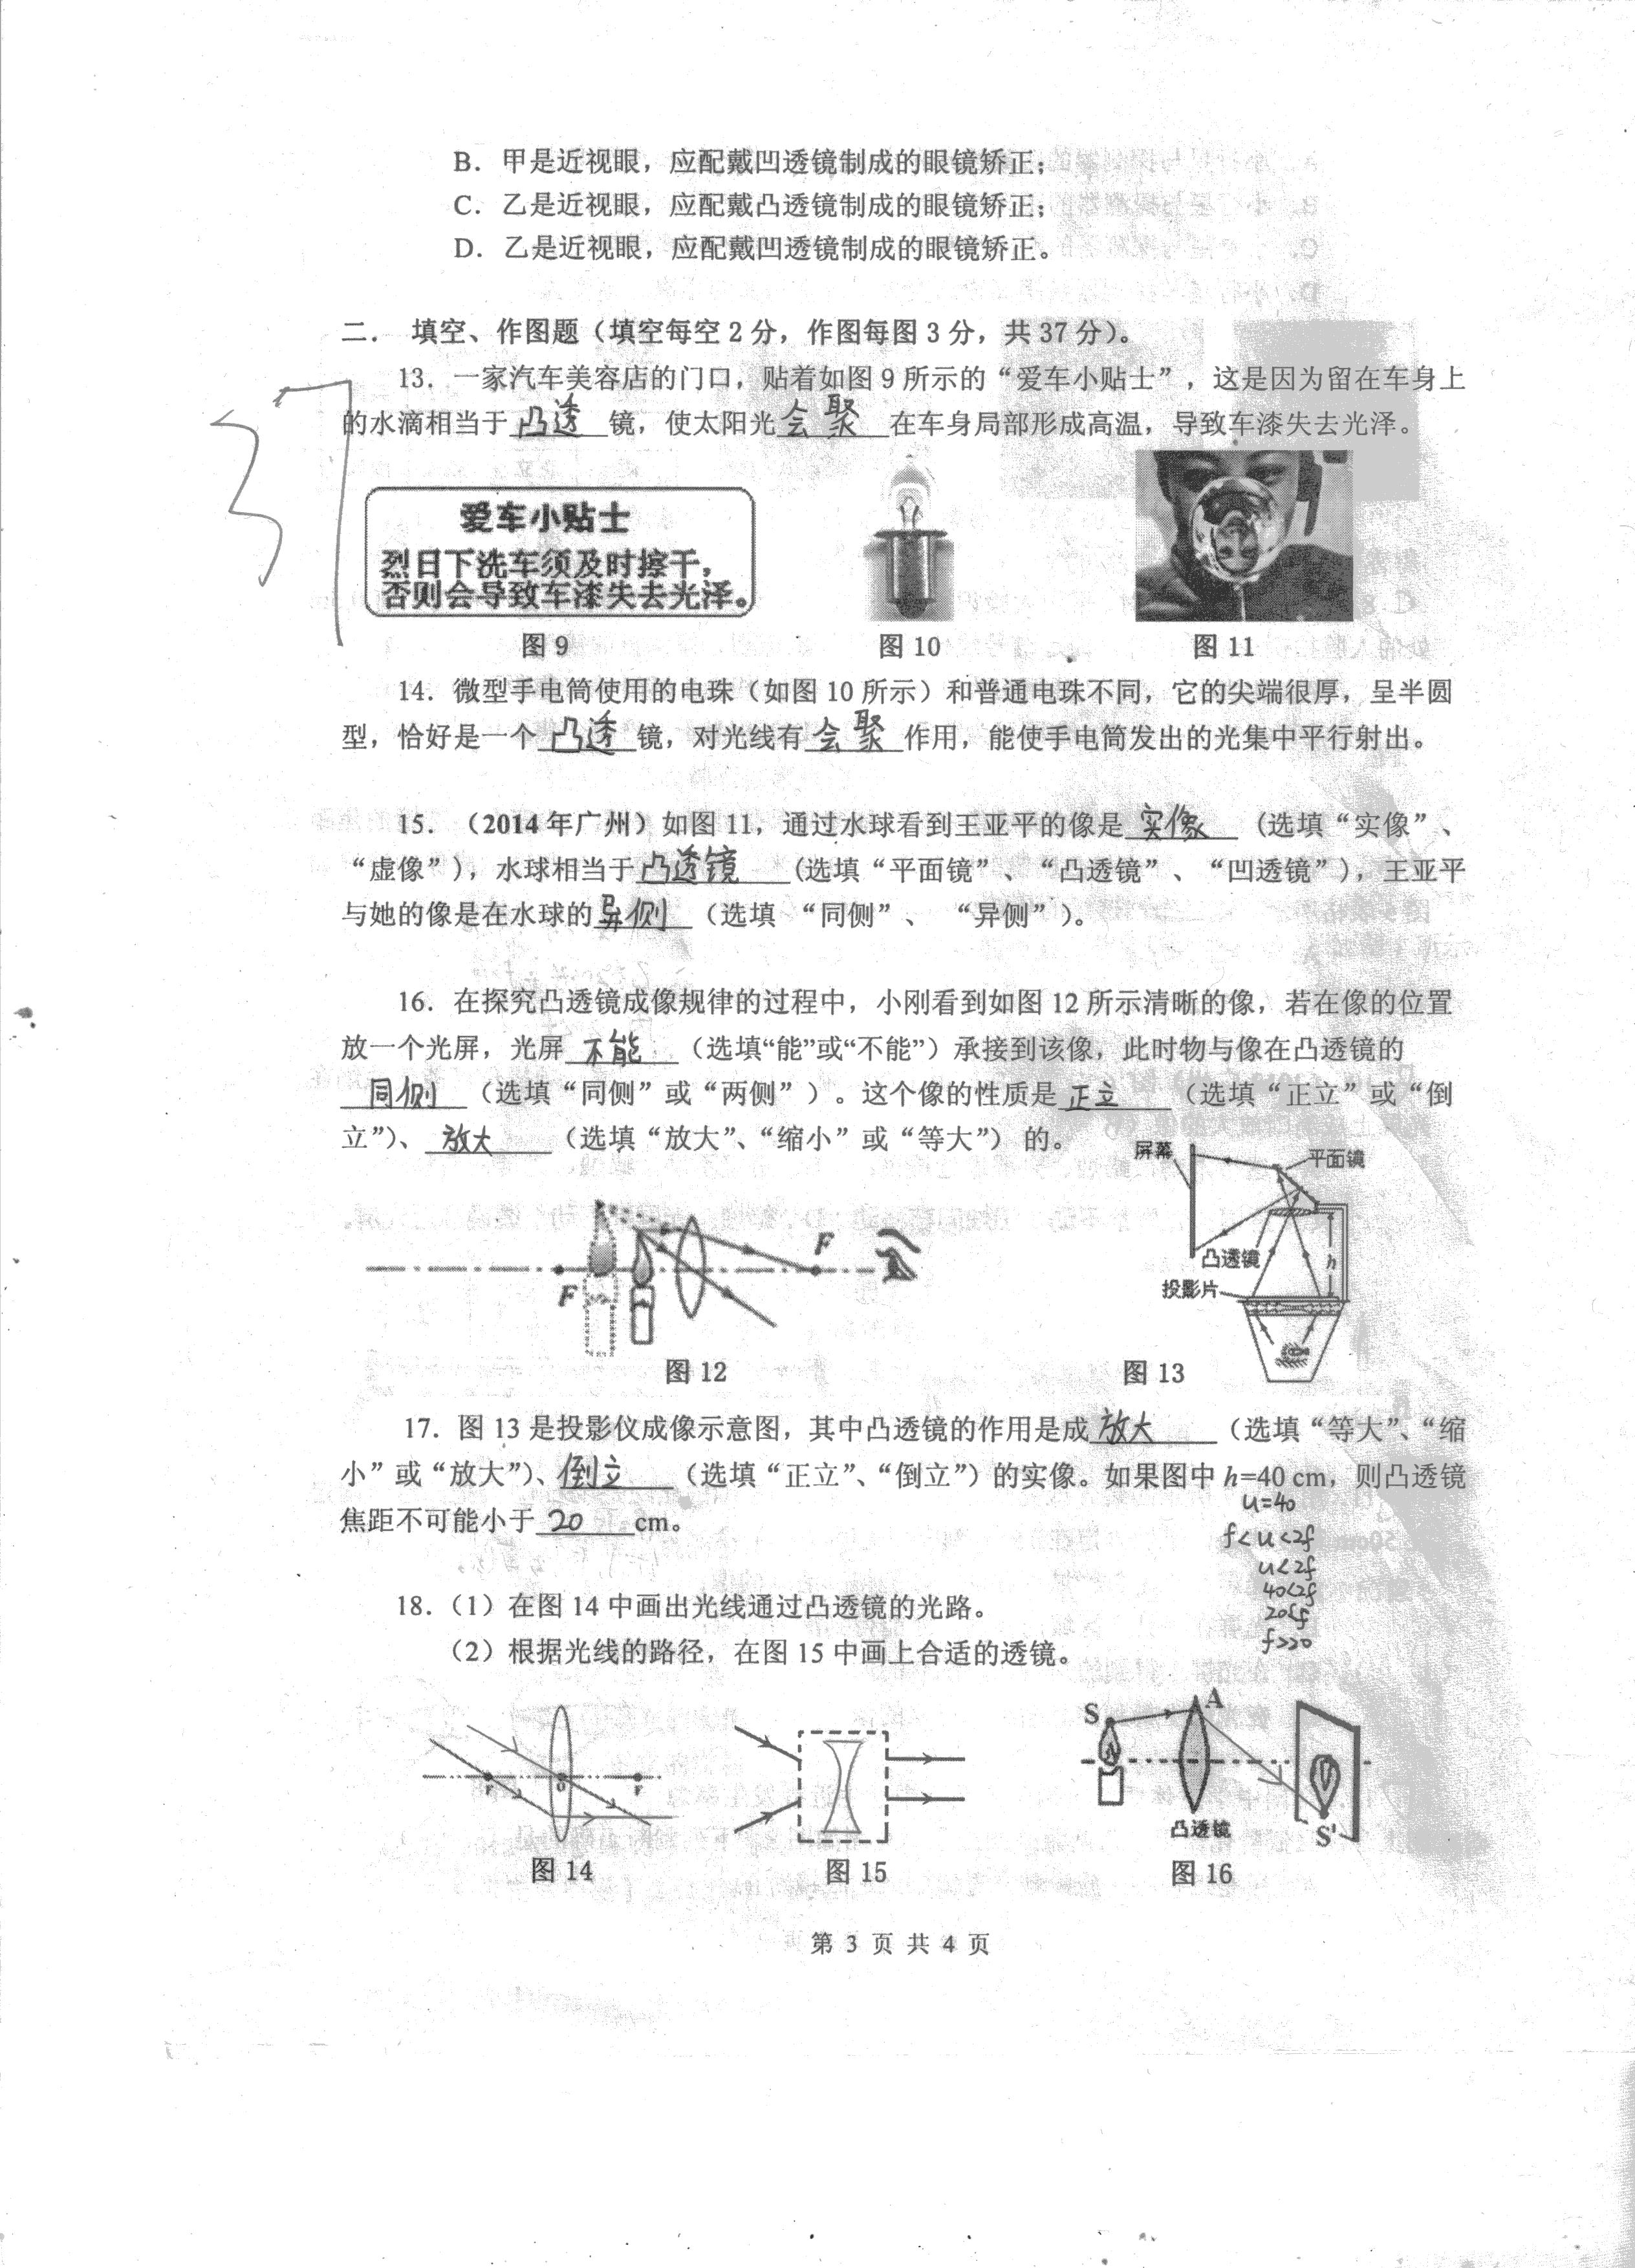 B. 甲是近视眼，应配戴凹透镜制成的眼镜矫正；
C. 乙是近视眼，应配戴凸透镜制成的眼镜矫正；
D. 乙是近视眼，应配戴凹透镜制成的眼镜矫正。
二. 填空、作图题（填空每空 2 分，作图每图 3 分，共 37 分）。
37
13. 一家汽车美容店的门口，贴着如图 9 所示的“爱车小贴士”，这是因为留在车身上
的水滴相当于 凸透 镜，使太阳光 会聚 在车身局部形成高温，导致车漆失去光泽。
爱车小贴士
烈日下洗车须及时擦干，
否则会导致车漆失去光泽。
图 9 图 10 图 11
14. 微型手电筒使用的电珠（如图 10 所示）和普通电珠不同，它的尖端很厚，呈半圆
型，恰好是一个 凸透 镜，对光线有 会聚 作用，能使手电筒发出的光集中平行射出。
15. （2014 年广州）如图 11，通过水球看到王亚平的像是 实像 (选填“实像”、
“虚像”)，水球相当于 凸透镜 (选填“平面镜”、“凸透镜”、“凹透镜”)，王亚平
与她的像是在水球的 异侧 （选填 “同侧”、 “异侧”）。
16. 在探究凸透镜成像规律的过程中，小刚看到如图 12 所示清晰的像，若在像的位置
放一个光屏，光屏 不能 （选填“能”或“不能”）承接到该像，此时物与像在凸透镜的
同侧 （选填“同侧”或“两侧”）。这个像的性质是 正立 （选填“正立”或“倒
立”）、 放大 （选填“放大”、“缩小”或“等大”） 的。
屏幕 平面镜
凸透镜 h
投影片
F F
图 12 图 13
17. 图 13 是投影仪成像示意图，其中凸透镜的作用是成 放大 （选填“等大”、“缩
小”或“放大”）、 倒立 （选填“正立”、“倒立”）的实像。如果图中 h=40 cm，则凸透镜
焦距不可能小于 20 cm。
u=40
f<u<2f
u<2f
40<2f
20<f
f>20
18.（1）在图 14 中画出光线通过凸透镜的光路。
（2）根据光线的路径，在图 15 中画上合适的透镜。
F O F
S A
凸透镜 S'
图 14 图 15 图 16
第 3 页 共 4 页